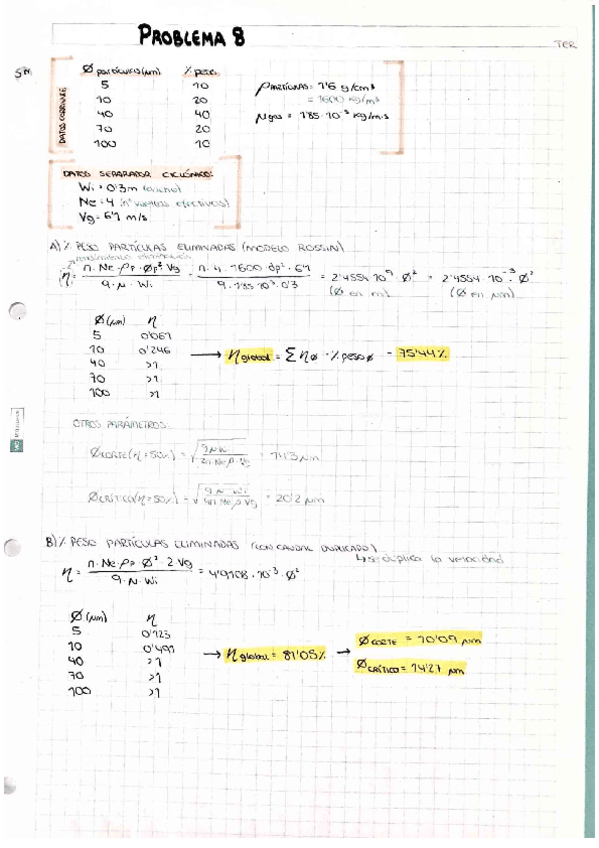 PROBLEMA 8
TER
Ø partículas (µm) % peso
5 10
10 20
40 40
70 20
100 10
DATOS CORRIENTE
ρ PARTÍCULAS = 1'6 g/cm³
= 1600 kg/m³
µ gas = 1'85·10⁻⁵ kg/m·s
DATOS SEPARADOR CICLÓNICO:
Wi = 0'3m (ancho)
Ne = 4 (nº vueltas efectivas)
Vg = 6'1 m/s
A) % PESO PARTÍCULAS ELIMINADAS (MODELO ROSSIN)
rendimiento eliminación
η = π·Ne·ρp·Øp²·Vg / 9·µ·Wi = π·4·1600·dp²·6'1 / 9·1'85·10⁻⁵·0'3 = 2'4554·10⁹·Ø² = 2'4554·10⁻³·Ø²
(Ø en m) (Ø en µm)
Ø (µm) η
5 0'061
10 0'246
40 >1
70 >1
100 >1
→ η global = Σ ηØ · % pesoØ = 75'44%
OTROS PARÁMETROS:
Ø CORTE (η=50%) = = 14'3 µm
Ø CRÍTICO (η=50%) = = 20'2 µm
B) % PESO PARTÍCULAS ELIMINADAS (CON CAUDAL DUPLICADO)
↳ se duplica la velocidad
η = π·Ne·ρp·Ø²·2·Vg / 9·µ·Wi = 4'9108·10⁻³·Ø²
Ø (µm) η
5 0'123
10 0'491
40 >1
70 >1
100 >1
→ η global = 81'05% → Ø CORTE = 10'09 µm
Ø CRÍTICO = 14'27 µm